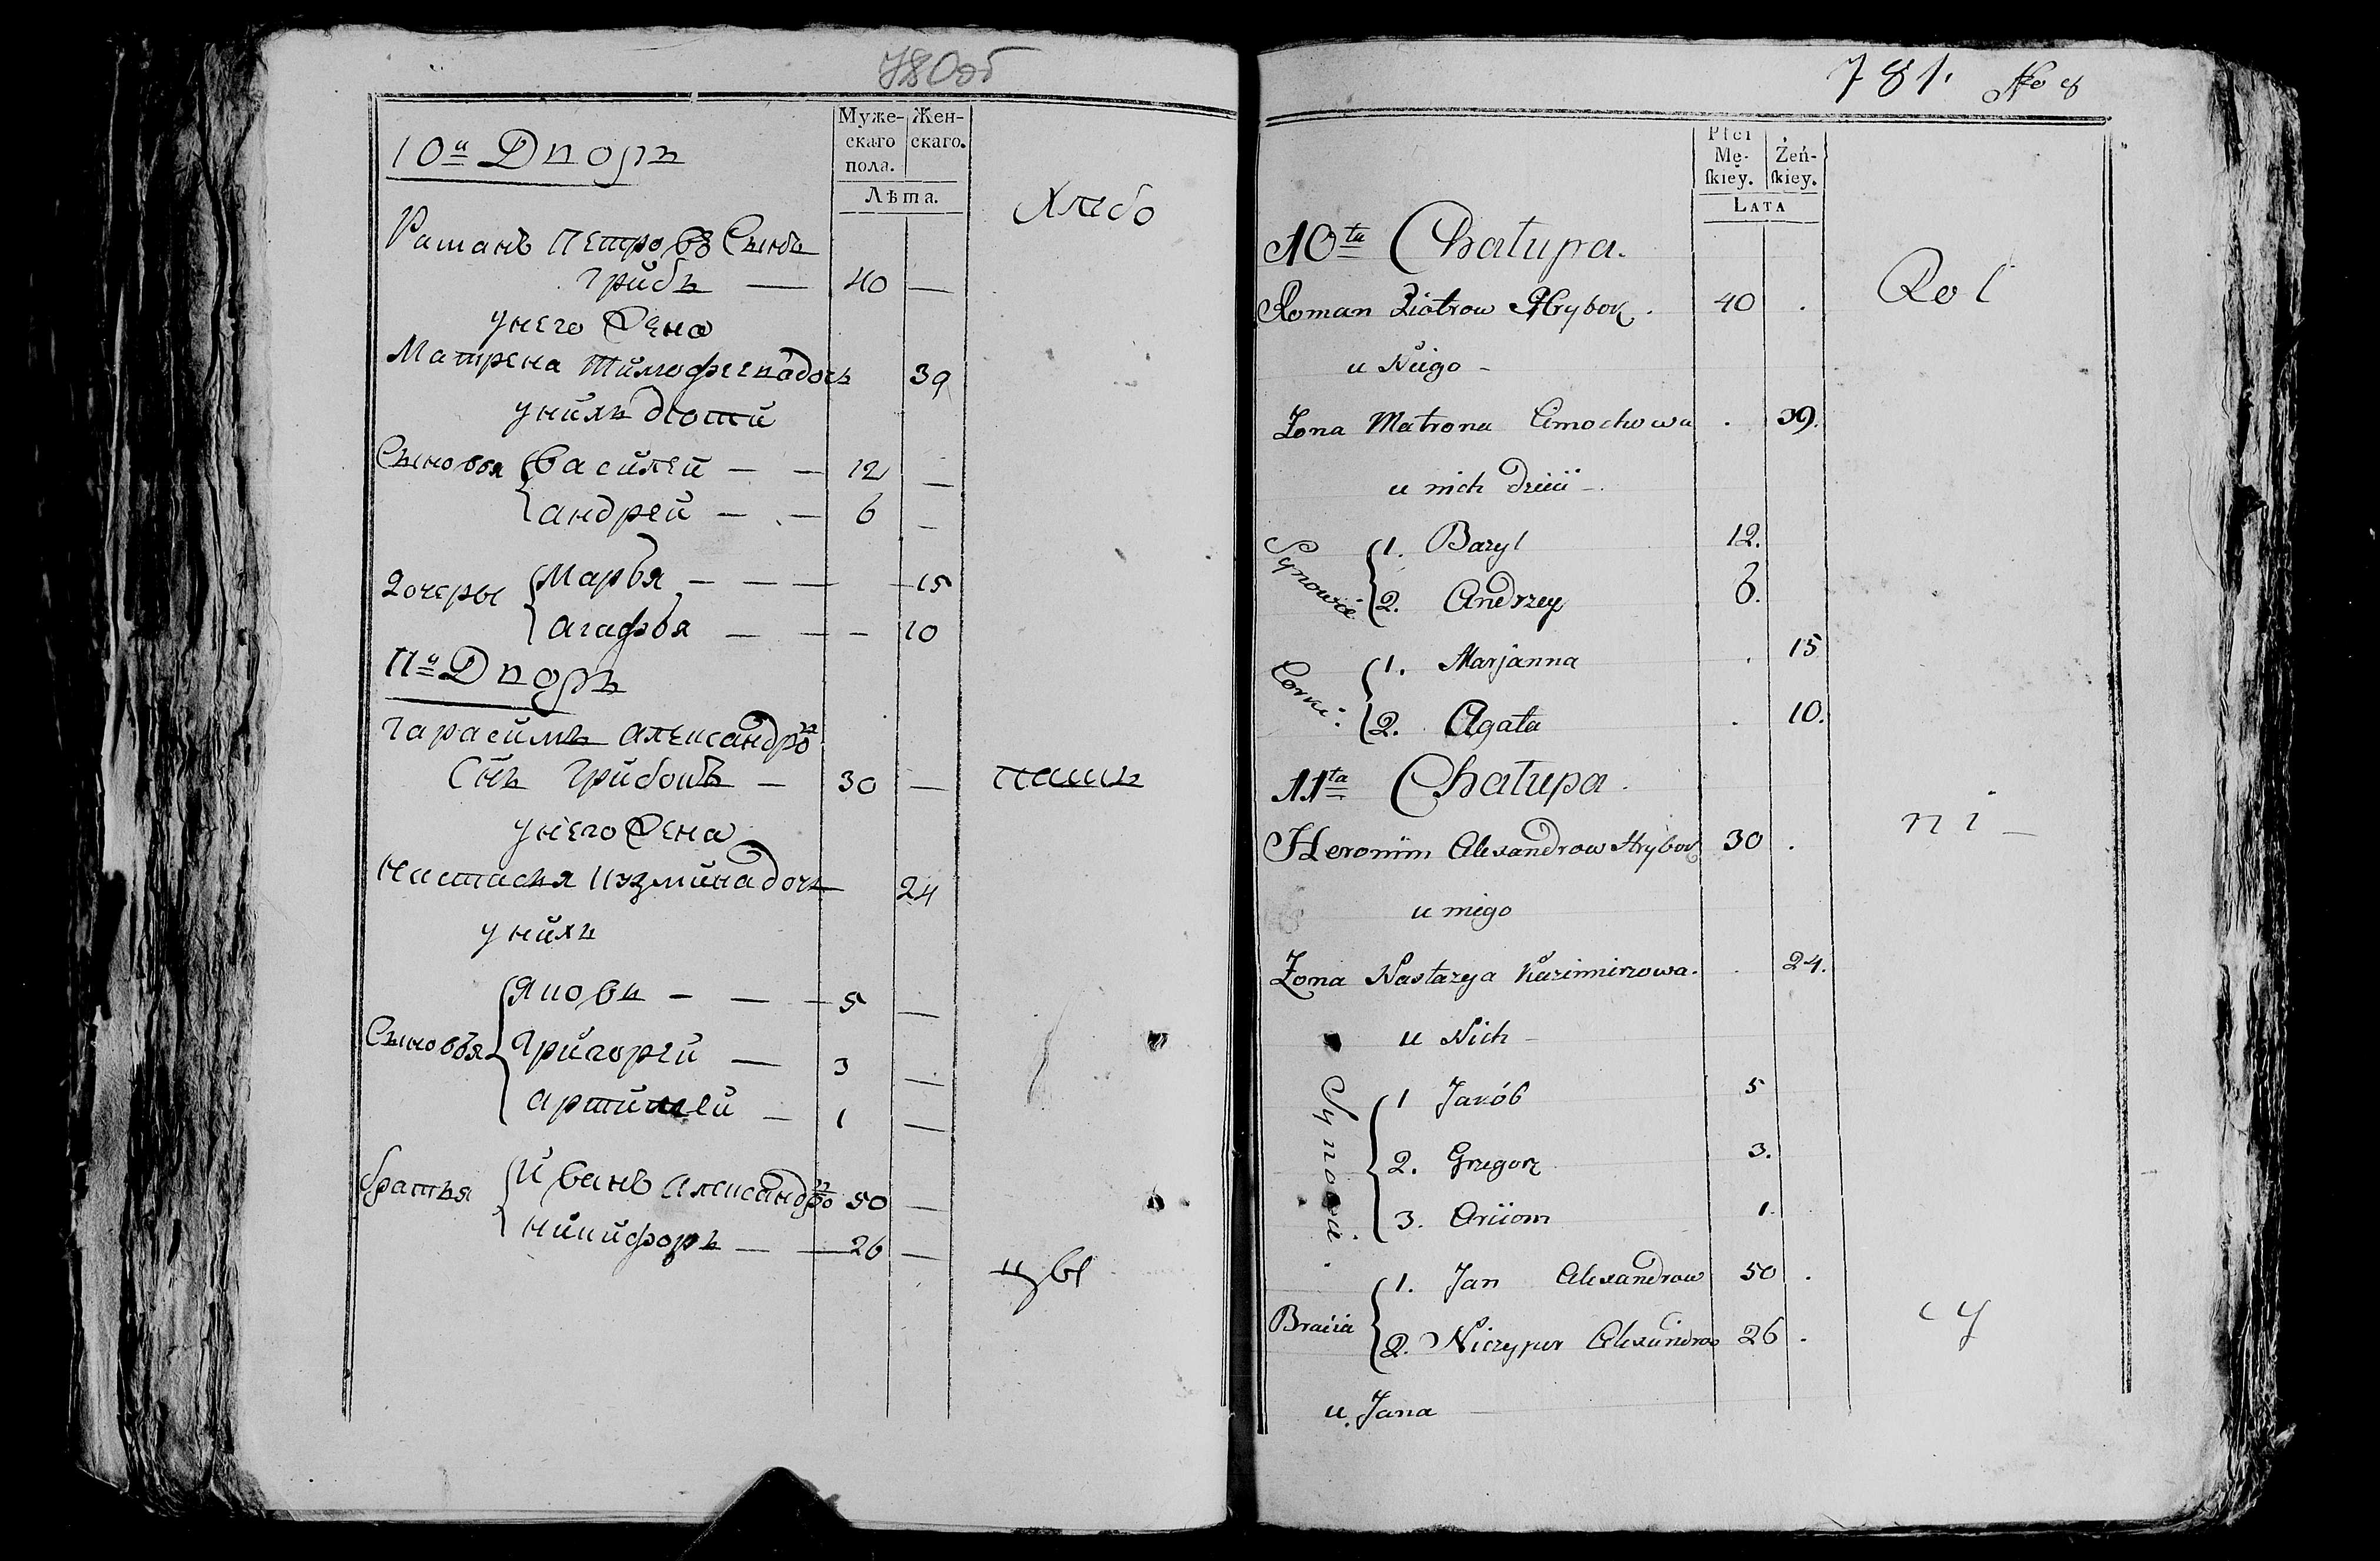 780об
Муже- Жен-
скаго скаго.
пола.
Лѣта.
10й Дворъ
Хлебо
Раманъ Петровъ Сынъ
Грибъ — 40 —
унего Жена
Матрена Тимофеева дочь 39
унихъ дѣти
Сыновья Василей — — 12 —
андрей — — 6 —
Дочеры Марья — — — 15
агафья — — — 10
11й Дворъ
Гарасимъ александро въ
Снъ Грибокъ — 30 —
пашъ
унего Жена
Настасья Кузмина дочь 24
унихъ
Яковъ — — 5 —
Сыновья Григорей — 3 —
артимей — 1 —
братья Иванъ александро въ 50 —
никифоръ — 26 —
цы
781. No 8
Płci
Mę- Żeń-
ſkiey. ſkiey.
LATA
10ta Chałupa.
Rol
Roman Piotrow Hrybok. 40 .
u Niego -
Zona Matrona Cimochowa . 39.
u nich dzieci -
Synowie 1. Bazyl 12.
2. Andrzey 6.
Corki. 1. Marjanna . 15
2. Agata . 10.
11ta Chałupa.
ni -
Heronim Alexandrow Hrybok 30 .
u niego
Zona Nastazya Kazimirzowa. . 24.
u Nich -
Synowie. 1 Jakób 5
2. Grzegorz 3.
3. Arciom 1.
Bracia 1. Jan Alexandrow 50 .
2. Niczypor Alexandrow 26 .
cy
u Jana